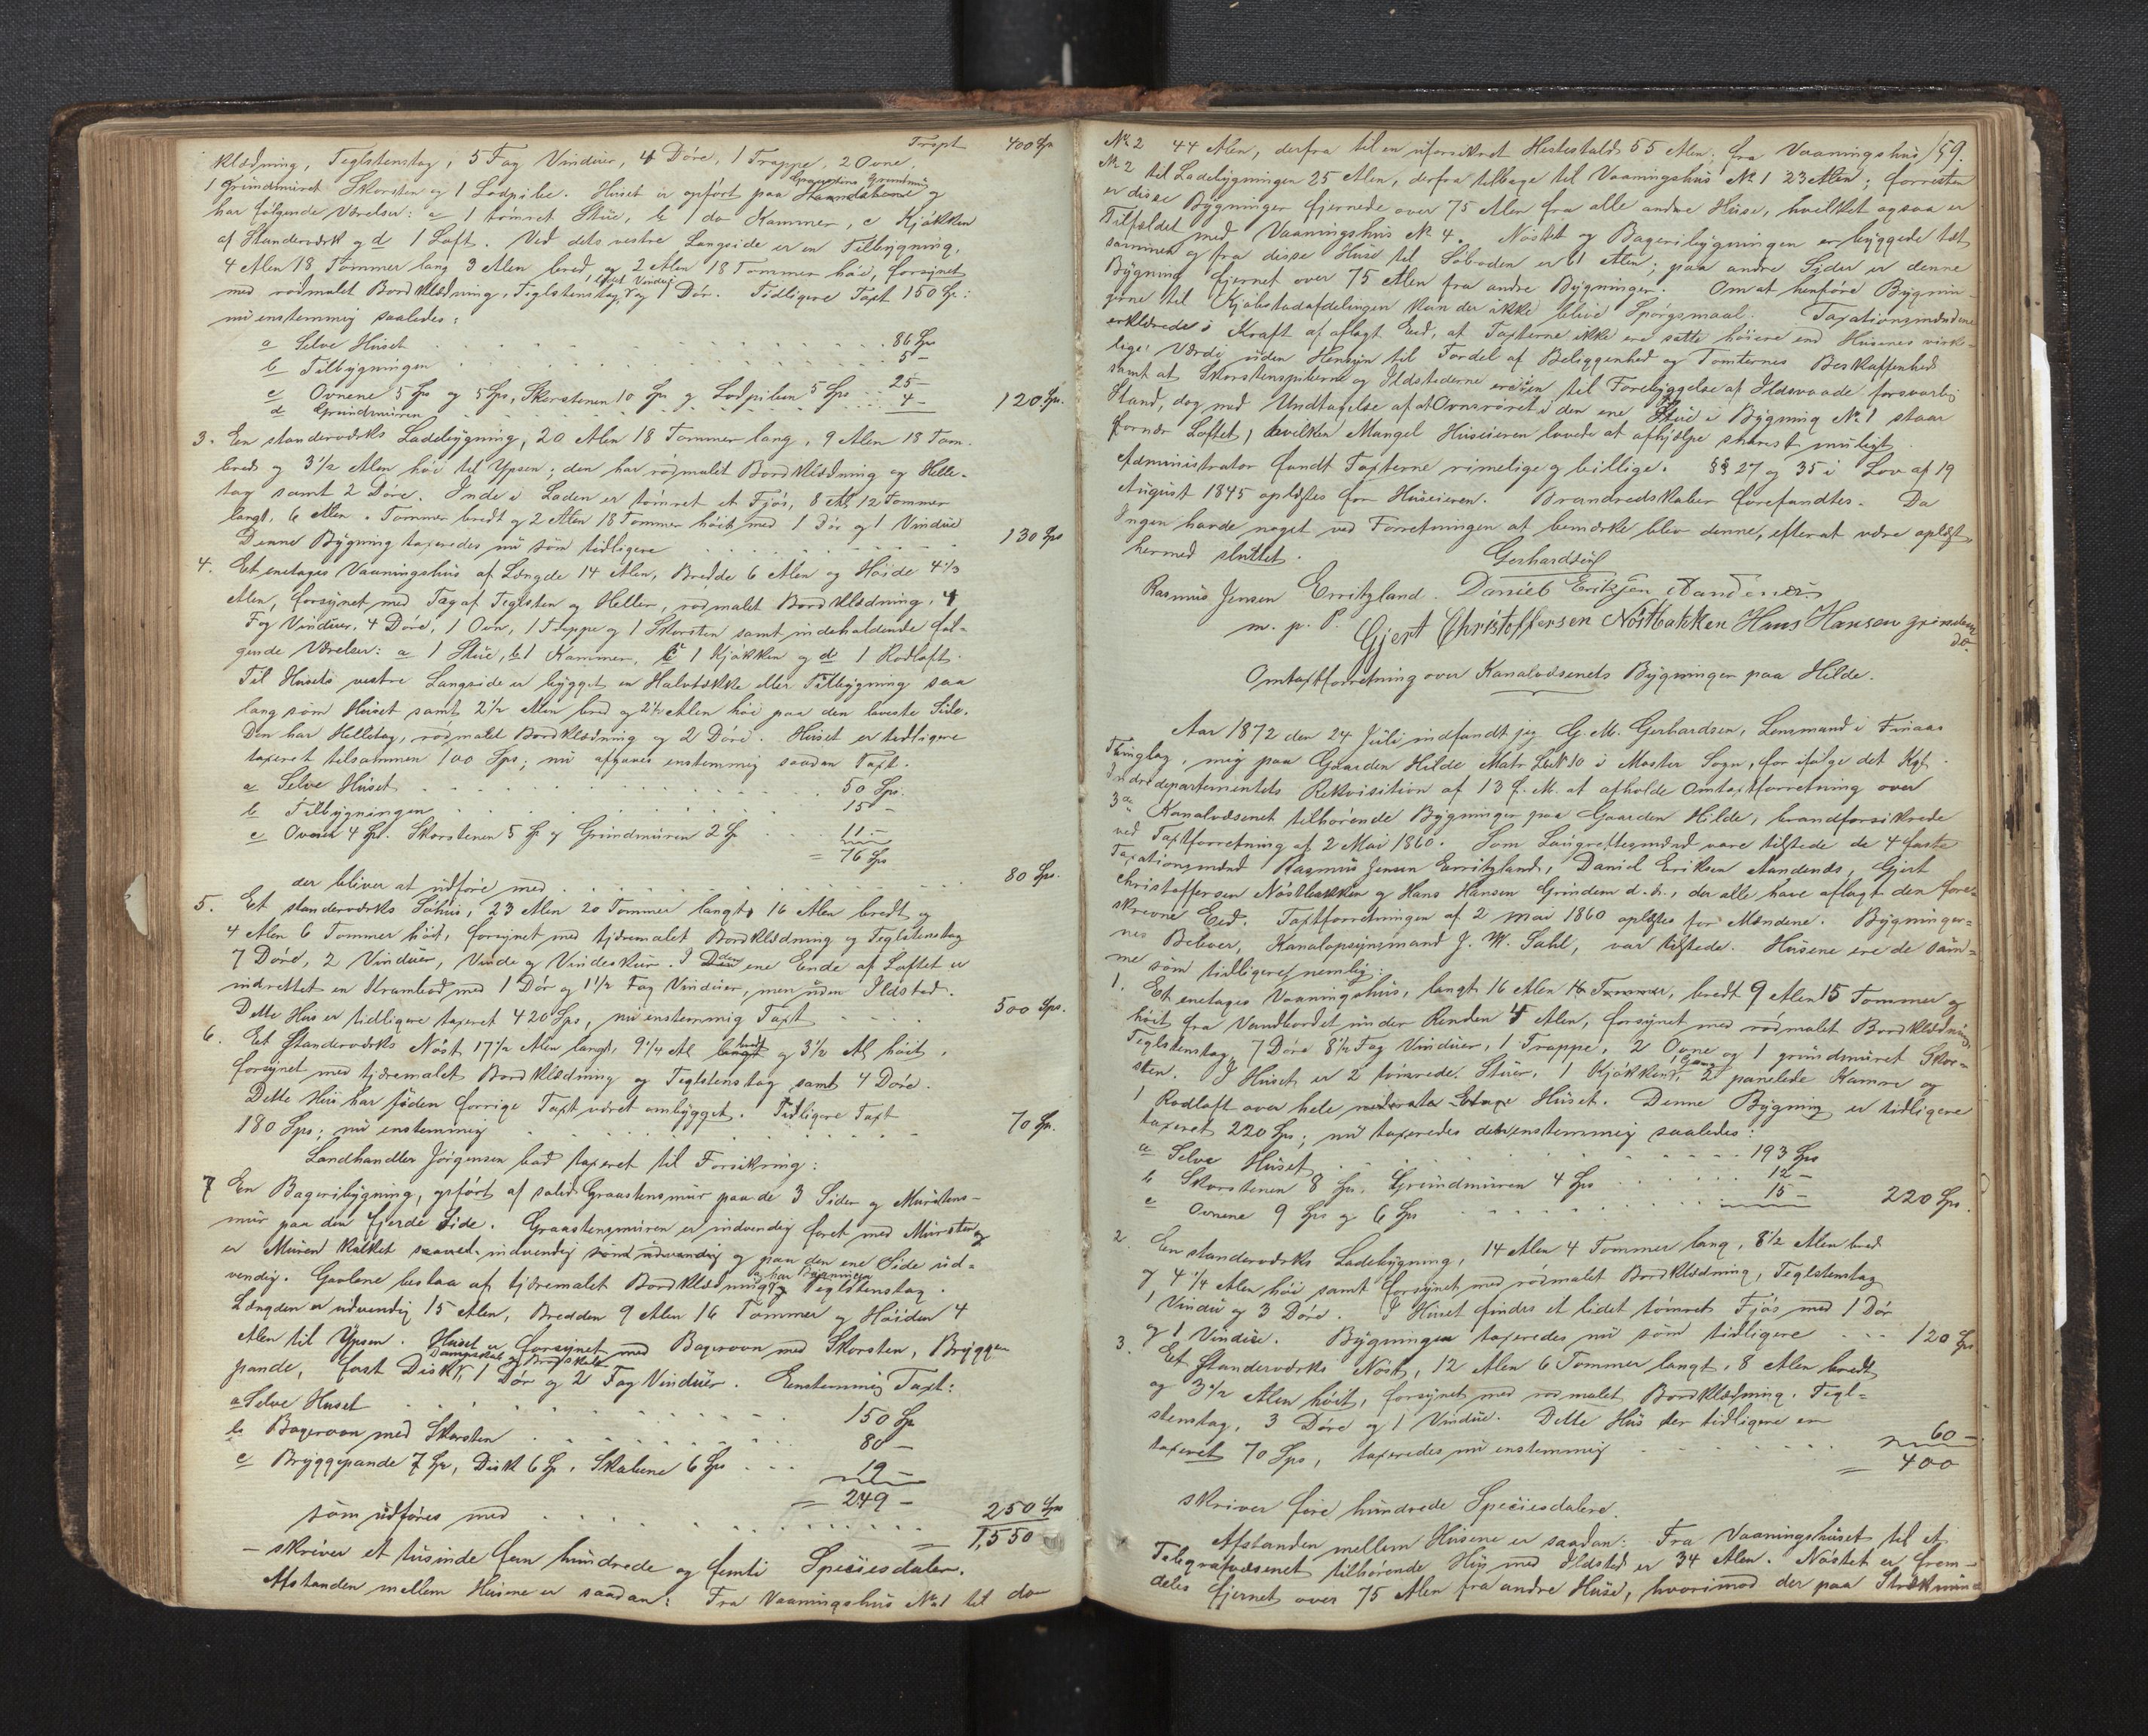 Trspt 400 Sp
klædning, Teglstenstag, 5 Fag Vinduer, 4 Döre, 1 Trappe, 2 Ovne,
1 Grundmuret Skorsten og 1 Lodpibe. Huset er opfört paa Graastens Grundmur og
har fölgende Værelser: a 1 tömret Stue, b 1 do Kammer, c Kjökken
af Standerværk og d 1 Loft. Ved dets vestre Langside er en Tilbygning,
4 Alen 18 Tommer lang 3 Alen bred og 2 Alen 18 Tommer höi, forsynet
med rödmalet Bordklædning, Teglstenstag, 1 Fag Vinduer og 1 Dör. Tidligere Taxt 150 Sp:
nu enstemmig saaledes:
a Selve Huset 86 Sp
b Tilbygningen 5 -
c Ovnene 5 Sp og 5 Sp, Skorstenen 10 Sp og Lodpiben 5 Sp 25 -
d Grundmuren 4 - 120 Sp.
3. En standerværks Ladebygning, 20 Alen 18 Tommer lang, 9 Alen 18 Tom.
bred og 3 1/2 Alen höi til Ypsen; den har rödmalet Bordklædning og Helle-
tag samt 2 Döre. Inde i Laden er tömret et Fjös, 8 Al 12 Tommer
langt, 6 Alen Tommer bredt og 2 Alen 18 Tommer höit med 1 Dör og 1 Vindue
Denne Bygning taxeredes nu som tidligere 130 Sps
4. Et enetages Vaaningshus af Længde 14 Alen, Bredde 6 Alen og Höide 4 1/3
Alen, forsynet med Tag af Teglsten og Heller, rödmalet Bordklædning, 4
Fag Vinduer, 4 Döre, 1 Ovn, 1 Trappe og 1 Skorsten samt indeholdende föl-
gende Værelser: a 1 Stue, b 1 Kammer, c 1 Kjökken og d 1 Rodloft.
Til Husets vestre Langside er bygget en Halvtække eller Tilbygning saa
lang som Huset samt 2 1/2 Alen bred og 2 1/2 Alen höi paa den laveste Side.
Den har Helletag, rödmalet Bordklædning og 2 Döre. Huset er tidligere
taxeret tilsammen 100 Sps; nu afgaves enstemmig saadan Taxt.
a Selve Huset 50 Sps.
b Tilbygningen 15 -
c Ovnen 4 Sp. Skorstenen 5 Sp og Grundmuren 2 Sp 11 -
= 76 Sps
der bliver at udföre med 80 Sps.
5. Et standerværks Söhus, 23 Alen 20 Tommer langt, 16 Alen bredt og
4 Alen 6 Tommer höit, forsynet med tjæremalet Bordklædning og Teglstenstag
7 Döre, 2 Vinduer, Vinde og Vindeskur. I den ene Ende af Loftet er
indrettet en Krambod med 1 Dör og 1 1/2 Fag Vinduer, men uden Ildsted.
Dette Hus er tidligere taxeret 420 Sps, nu enstemmig Taxt 500 Sps.
6. Et Standerværks Nöst 17 1/2 Alen langt, 9 1/4 Al bredt og 3 1/2 Al höit,
forsynet med tjæremalet Bordklædning og Teglstenstag samt 4 Döre.
Dette Hus har siden forrige Taxt været ombygget. Tidligere Taxt
180 Sps; nu enstemmig 70 Sp.
Landhandler Jörgensen bad taxeret til Forsikring:
7 En Bageribygning, opfört af solid Graastensmur paa de 3 Sider og Murstens-
mur paa den fjerde Side. Graastensmuren er indvendig foret med Mursten og
er Muren kalket saavel indvendig som udvendig og paa den ene Side ud-
vendig. Gavlene bestaa af tjæremalet Bordklædning og har Bygningen Teglstenstag.
Længden er udvendig 15 Alen, Bredden 9 Alen 16 Tommer og Höiden 4
Alen til Ypsen. Huset er forsynet med Bagerovn med Skorsten, Brygge-
pande, fast Disk, Dampskab og Brödskab 1 Dör og 2 Fag Vinduer. Enstemmig Taxt:
a Selve Huset 150 Sp
b Bagerovn med Skorsten 80 -
c Bryggepande 7 Sp, Disk 6 Sp, Skabene 6 Sps 19 -
= 249 -
som udföres med 250 Sps
= 1,550
- skriver et tusinde fem hundrede og femti Speciesdaler.
Afstanden mellem Husene er saadan: Fra Vaaningshus No 1 til do
59.
No 2 44 Alen, derfra til en uforsikret Hestestald 55 Alen; fra Vaaningshus
No 2 til Ladebygningen 25 Alen, derfra tilbage til Vaaningshus No 1 23 Alen; forresten
er disse Bygninger fjernede over 75 Alen fra alle andre Huse, hvilket ogsaa er
Tilfældet med Vaaningshus No 4. Nöstet og Bageribygningen er byggede tæt
sammen og fra disse Huse til Söboden er 61 Alen; paa andre Sider er denne
Bygning fjernet over 75 Alen fra andre Bygninger. Om at henföre Bygnin-
gerne til Kjöbstadafdelingen kan der ikke blive Spörgsmaal. Taxationsmændene
erklærede i Kraft af aflagt Eed, at Taxterne ikke ere satte höiere end Husenes virke-
lige Værdi uden Hensyn til Fordel af Beliggenhed og Tomternes Beskaffenhed
samt at Skorstenspiberne og Ildstederne ere i en til Forebyggelse af Ildsvaade forsvarlig
Stand, dog med Undtagelse af at Ovnsröret i den ene Stue i Bygning No 1 staar
for nær Loftet, hvilken Mangel Huseieren lovede at afhjælpe snarest muligt.
Administrator fandt Taxterne rimelige og billige. §§ 27 og 35 i Lov af 19
August 1845 oplæstes for Huseieren. Brandredskaber forefandtes. Da
Ingen havde noget ved Forretningen at bemærke blev denne, efter at være oplæst
hermed sluttet.
Gerhardsen
Rasmus Jensen Erritzland. Daniel Eriksen Aandenæs
m. p. P. Gjert Christoffersen Nöstbakken Hans Hansen Grindem
do.
Omtaxtforretning over Kanalvæsenets Bygninger paa Hilde.
Aar 1872 den 24 Juli indfandt jeg G. M. Gerhardsen, Lensmand i Finaas
Thinglag, mig paa Gaarden Hilde Matr Löb No 10 i Moster Sogn, for ifölge det Kgl.
Indredepartementets Rekvisition af 13 f. M. at afholde Omtaxtforretning over
3de Kanalvæsenet tilhörende Bygninger paa Gaarden Hilde, brandforsikrede
ved Taxtforretning af 2 Mai 1860. Som Laugrettesmænd vare tilstede de 4 faste
Taxationsmænd Rasmus Jensen Erritzland, Daniel Eriksen Aandenæs, Gjert
Christoffersen Nöstbakken og Hans Hansen Grindem d. y., der alle have aflagt den fore-
skrevne Eed. Taxtforretningen af 2 Mai 1860 oplæstes for Mændene. Bygninger-
nes Beboer, Kanalopsynsmand J. W. Sahl, var tilstede. Husene ere de sam-
me som tidligere, nemlig:
1. Et enetages Vaaningshus, langt 16 Alen 16 Tommer, bredt 9 Alen 15 Tommer og
höit fra Vandbordet under Renden 4 Alen, forsynet med rödmalet Bordklædning,
Teglstenstag, 7 Döre 8 1/2 Fag Vinduer, 1 Trappe, 2 Ovne og 1 grundmuret Skor-
sten. I Huset er 2 tömrede Stuer, 1 Kjökken, 1 Gang, 2 panelede Kamre og
1 Rodloft over hele Huset. Denne Bygning er tidligere
taxeret 220 Sps; nu taxeredes den enstemmig saaledes:
a Selve Huset 193 Sps
b Skorstenen 8 Sp, Grundmuren 4 Sps 12 -
c Ovnene 9 Sps og 6 Sps 15 - 220 Sps.
2. En standerværks Ladebygning, 14 Alen 4 Tommer lang, 8 1/2 Alen bred
og 4 1/4 Alen höi samt forsynet med rödmalet Bordklædning, Teglstenstag
1 Vindu og 3 Döre. I Huset findes et lidet tömret Fjös med 1 Dör
og 1 Vindue. Bygningen taxeredes nu som tidligere 120 Sps
3. Et Standerværks Nöst, 12 Alen 6 Tommer langt, 8 Alen bredt
og 3 1/2 Alen höit, forsynet med rödmalet Bordklædning. Tegl-
stenstag, 3 Döre og 1 Vindue. Dette Hus der tidligere er
taxeret 70 Sps, taxeredes nu enstemmig 60 -
= 400
skriver fire hundrede Speciesdalere.
Afstanden mellem Husene er saadan: Fra Vaaningshuset til et
Telegrafvæsenet tilhörende Hus med Ildsted er 34 Alen. Nöstet er frem-
deles fjernet over 75 Alen fra andre Huse, hvorimod der paa